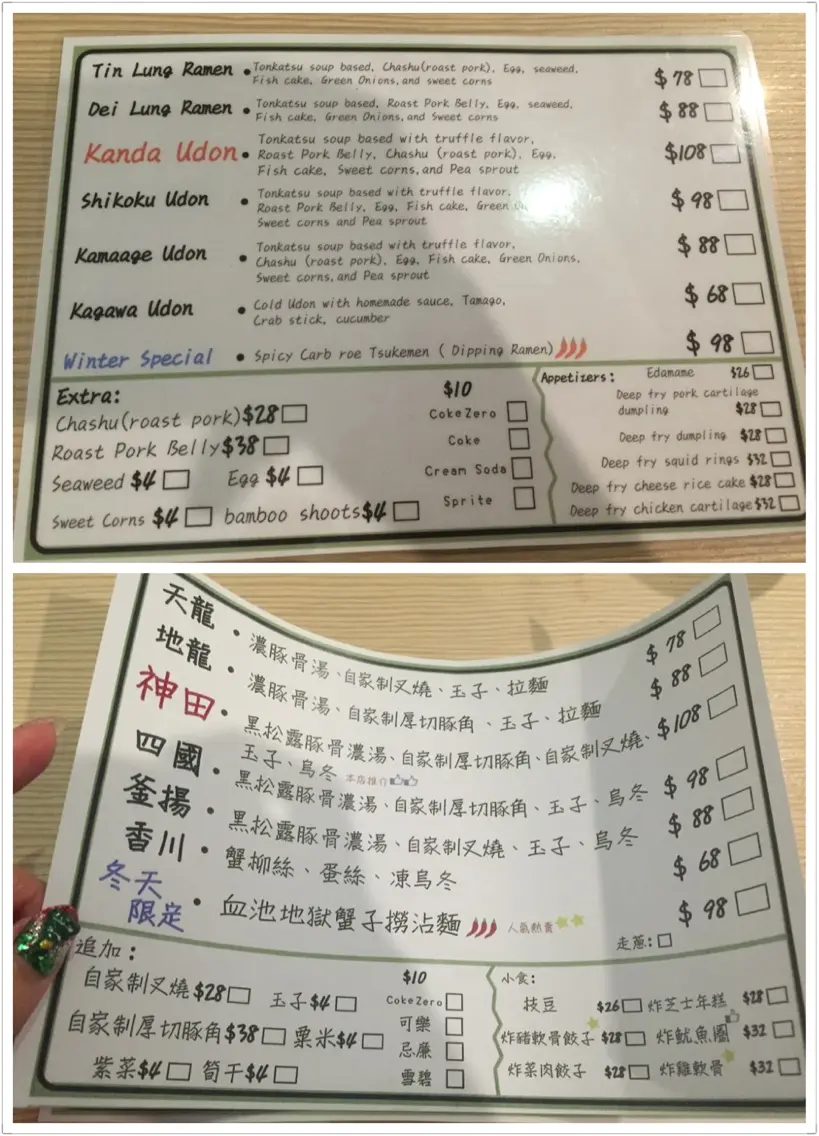 Tin Lung Ramen • Tonkatsu soup based, Chashu(roast pork), Egg, seaweed, $78
Fish cake, Green Onions, and sweet corns
Dei Lung Ramen • Tonkatsu soup based, Roast Pork Belly, Egg, seaweed, $88
Fish cake, Green Onions, and Sweet corns
Kanda Udon • Tonkatsu soup based with truffle flavor, $108
Roast Pork Belly, Chashu (roast pork), Egg,
Fish cake, Sweet corns, and Pea sprout
Shikoku Udon • Tonkatsu soup based with truffle flavor, $98
Roast Pork Belly, Egg, Fish cake, Green
Sweet corns and Pea sprout
Kamaage Udon • Tonkatsu soup based with truffle flavor, $88
Chashu (roast pork), Egg, Fish cake, Green Onions,
Sweet corns, and Pea sprout
Kagawa Udon • Cold Udon with homemade sauce, Tamago, $68
Crab stick, cucumber
Winter Special • Spicy Carb roe Tsukemen ( Dipping Ramen) $98
Extra:
Chashu(roast pork)$28
Roast Pork Belly$38
Seaweed $4 Egg $4
Sweet Corns $4 bamboo shoots$4
$10
Coke Zero
Coke
Cream Soda
Sprite
Appetizers: Edamame $26
Deep fry pork cartilage
dumpling $28
Deep fry dumpling $28
Deep fry squid rings $32
Deep fry cheese rice cake $28
Deep fry chicken cartilage $32
天龍 • 濃豚骨湯、自家制叉燒、玉子、拉麵 $78
地龍 • 濃豚骨湯、自家制厚切豚角、玉子、拉麵 $88
神田 • 黑松露豚骨濃湯、自家制厚切豚角、自家制叉燒、 $108
玉子、烏冬 本店推介
四國 • 黑松露豚骨濃湯、自家制厚切豚角、玉子、烏冬 $98
釜揚 • 黑松露豚骨濃湯、自家制叉燒、玉子、烏冬 $88
香川 • 蟹柳絲、蛋絲、凍烏冬 $68
冬天
限定 • 血池地獄蟹子撈沾麵 人氣熱賣 $98
走蔥:
追加:
自家制叉燒$28 玉子$4
自家制厚切豚角$38 粟米$4
紫菜$4 筍干$4
$10
Coke Zero
可樂
忌廉
雪碧
小食:
枝豆 $26 炸芝士年糕 $28
炸豬軟骨餃子 $28 炸魷魚圈 $32
炸菜肉餃子 $28 炸雞軟骨 $32